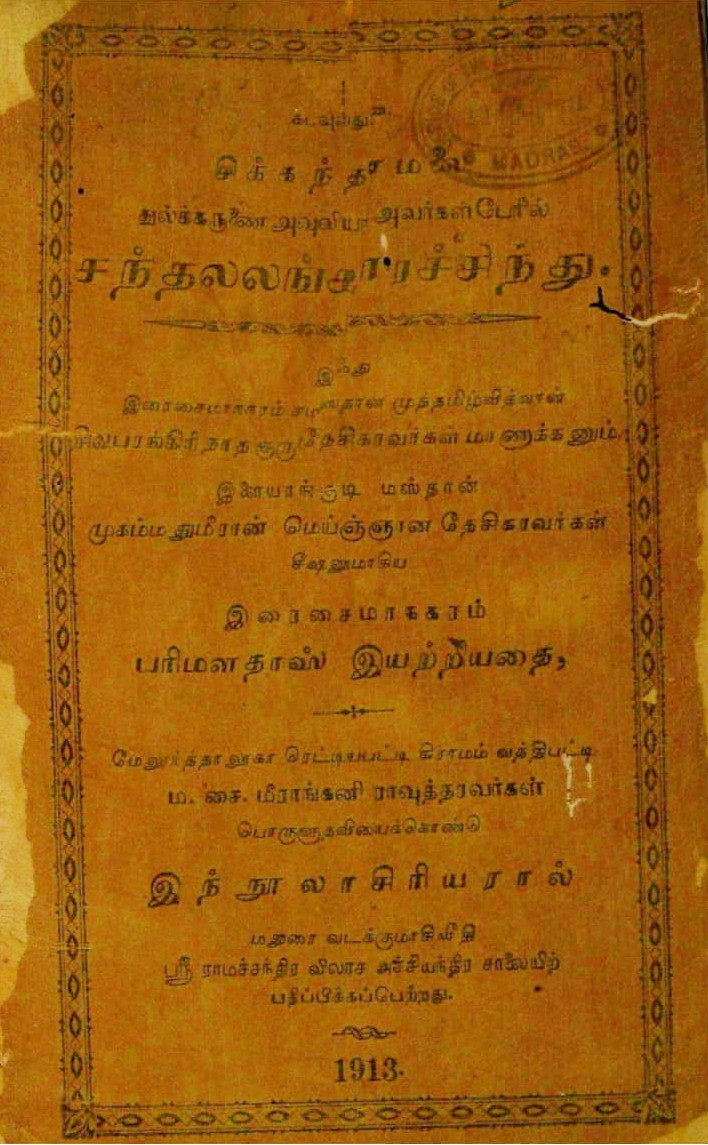 கடவுள்துணை.
சிக்கந்தாமலை
துல்க்கருணை அவுலியா அவர்கள்பேரில்
சந்தலலங்காரச்சிந்து.
இஃது
இரைசைமாநகரம் முத்தமிழ்வித்வான்
தேசிகாவர்கள் மாணாக்கனும்,
இளையாங்குடி மஸ்தான்
முகம்மதுமீரான் மெய்ஞ்ஞான தேசிகாவர்கள்
சீஷனுமாகிய
இரைசைமாநகரம்
பரிமளதாஸ் இயற்றியதை,
மேலூர்த்தாலூகா ரெட்டியபட்டி கிராமம் வத்திபட்டி
ம. சை. மீராங்கனி ராவுத்தரவர்கள்
பொருளுதவியைக்கொண்டு
இந்நூலாசிரியரால்
மதுரை வடக்குமாசிவீதி
ஸ்ரீ ராமச்சந்திர விலாச அச்சியந்திர சாலையிற்
பதிப்பிக்கப்பெற்றது.
1913.
MADRAS